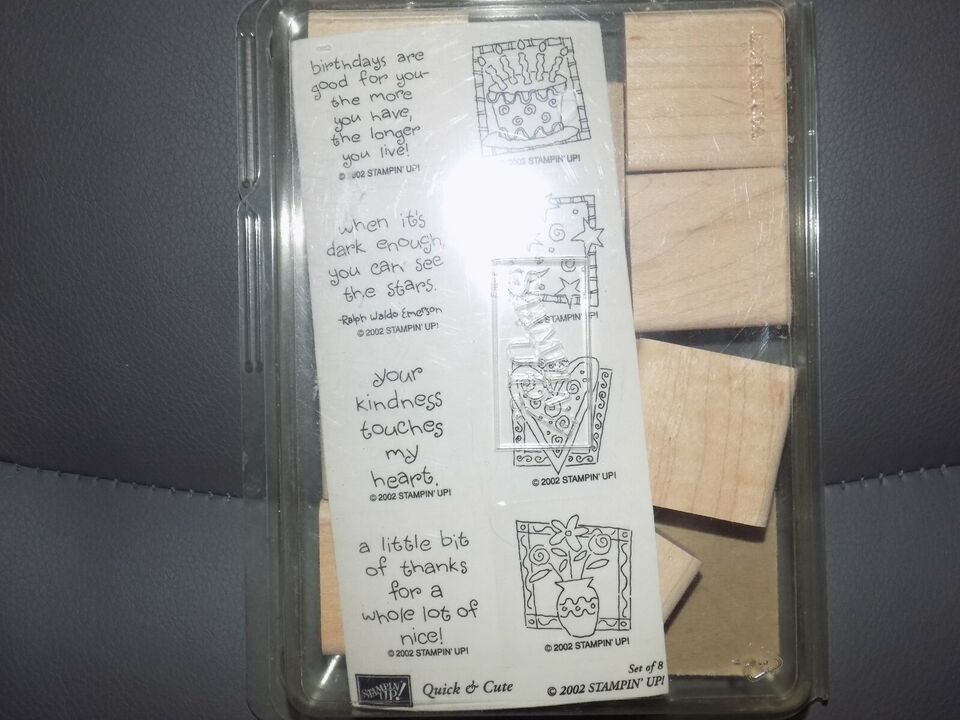 birthdays are
good for you-
the more
you have,
the longer
you live!
© 2002 STAMPIN' UP!
© 2002 STAMPIN' UP!
when it's
dark enough,
you can see
the stars.
-Ralph Waldo Emerson
© 2002 STAMPIN' UP!
© STAMPIN' UP!
your
kindness
touches
my
heart.
© 2002 STAMPIN' UP!
© 2002 STAMPIN' UP!
a little bit
of thanks
for a
whole lot of
nice!
© 2002 STAMPIN' UP!
© 2002 STAMPIN' UP!
STAMPIN' UP!
Quick & Cute
Set of 8
© 2002 STAMPIN' UP!